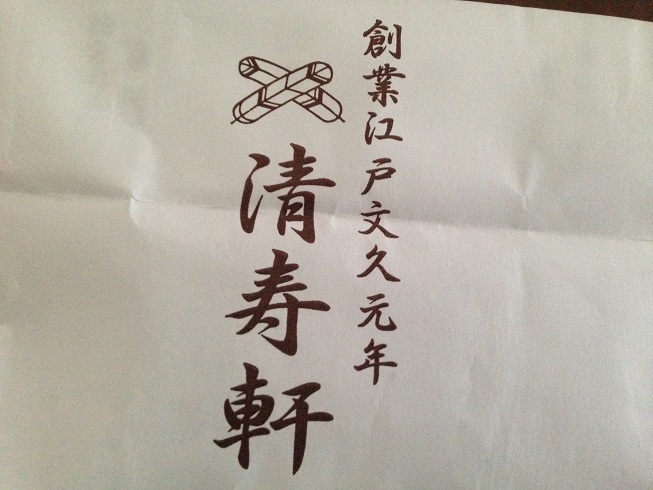 創業江戸文久元年
清寿軒